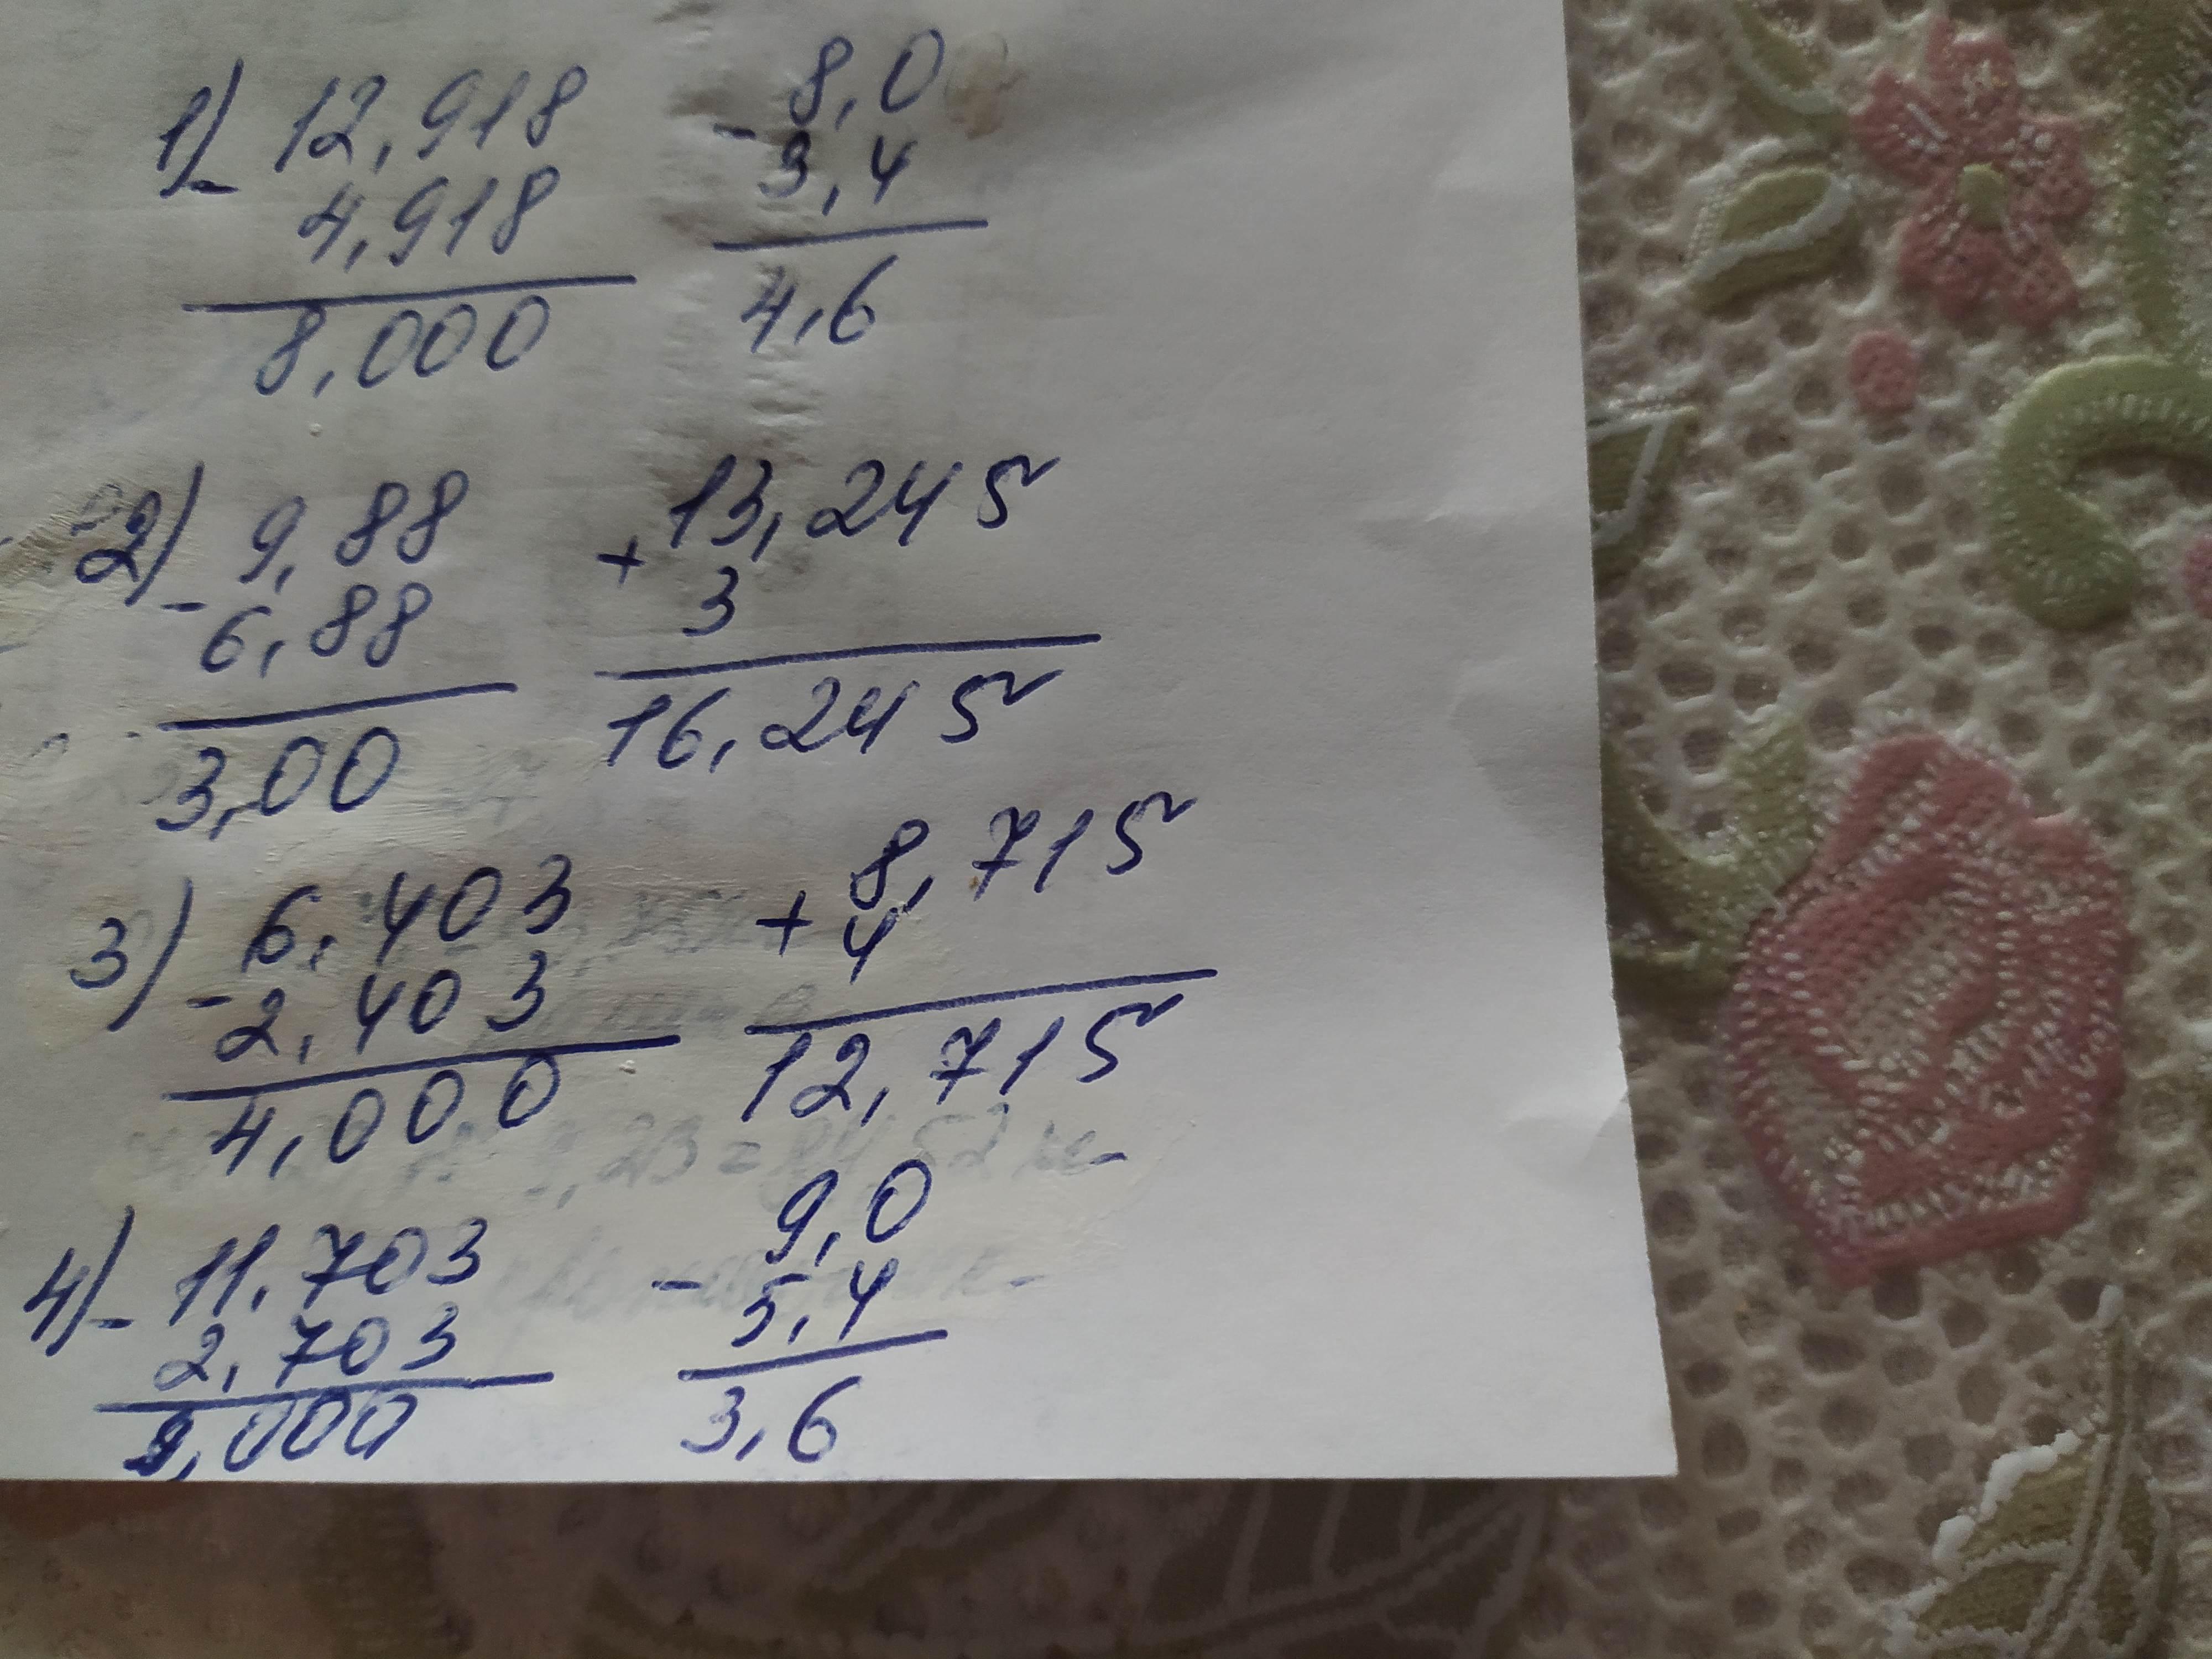 1) - 12,918
4,918
8,000
- 8,0
3,4
4,6
2) - 9,88
6,88
3,00
+ 13,245
3
16,245
3) - 6,403
2,403
4,000
+ 8,715
4
12,715
4) - 11,703
2,703
9,000
- 9,0
5,4
3,6